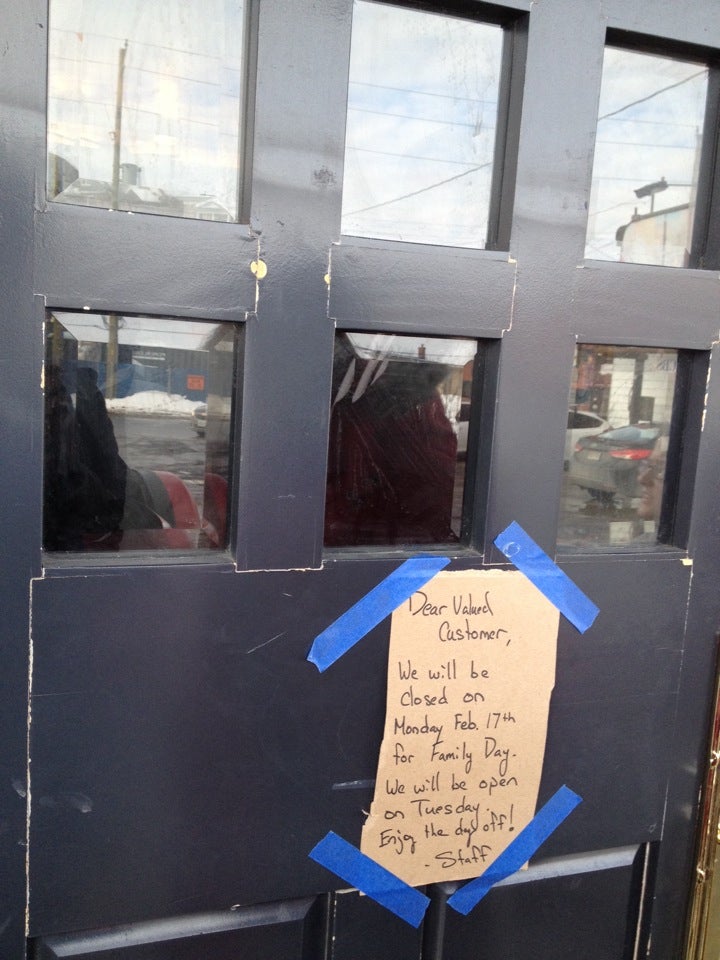 Dear Valued
Customer,
We will be
closed on
Monday Feb. 17th
for Family Day.
We will be open
on Tuesday.
Enjoy the day off!
- Staff